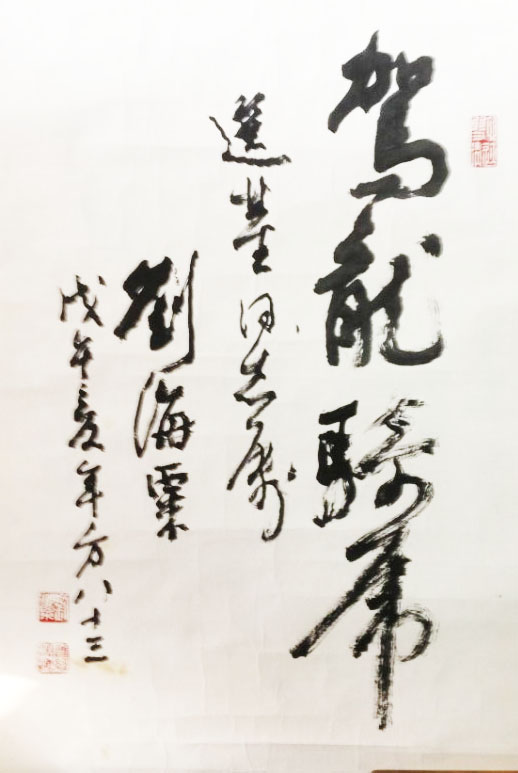 駕龍騎虎
選同志屬
劉海粟
戊午夏年方八十三